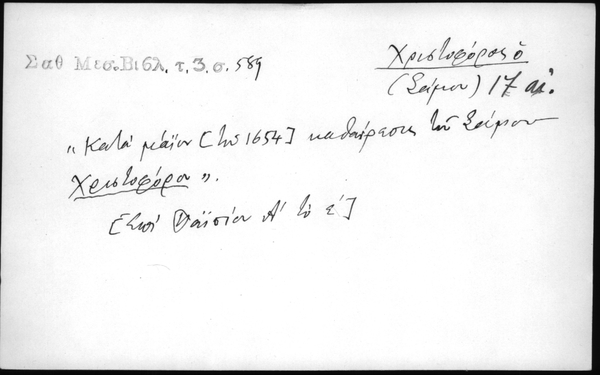 Σαθ Μεσ. Βιβλ. τ. 3. σ. 589
Χριστοφόρος ὁ
(Σάμου) 17 αἰ.
"Κατὰ μάϊον [τοῦ 1654] καθαίρεσις τοῦ Σάμου
Χριστοφόρου".
[Ἐπὶ Παϊσίου Α' τὸ β']